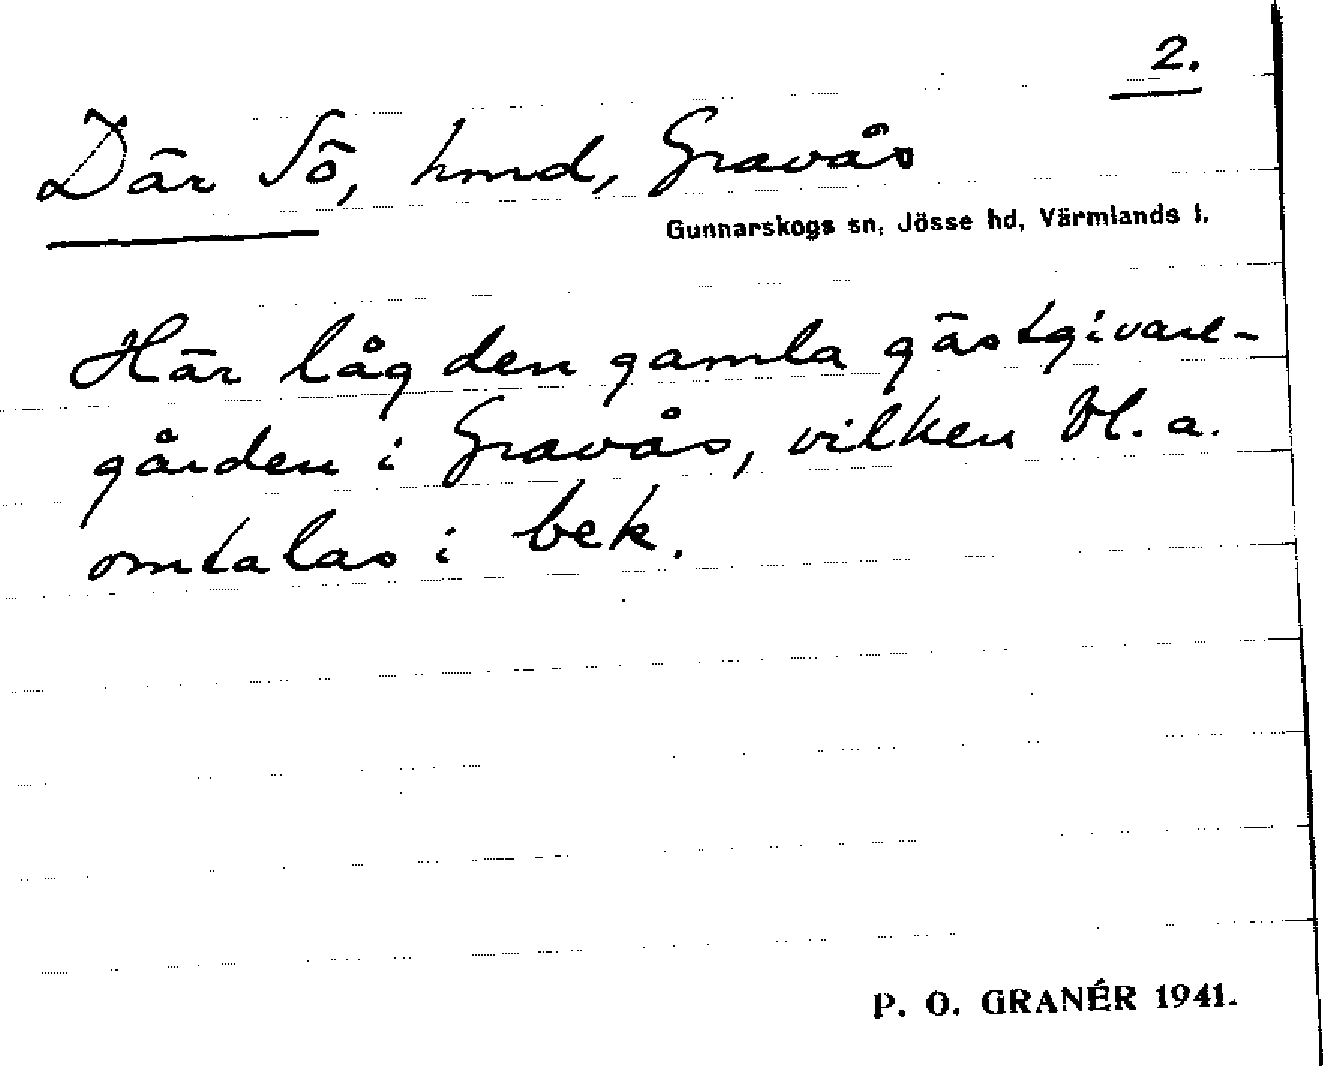 2.
Där Sö, hmd, Gravås
Gunnarskogs sn, Jösse hd, Värmlands l.
Här låg den gamla gästgivare-
gården i Gravås, vilken bl. a.
omtalas i bek.
P. O. GRANÉR 1941.